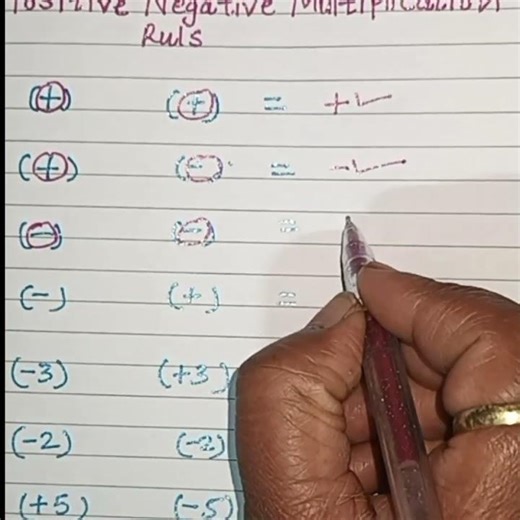 Positive Negative Multiplication
Ruls
(+) (+) = + ✓
(+) (-) = - ✓
(-) (-) =
(-) (+) =
(-3) (+3)
(-2) (-2)
(+5) (-5)